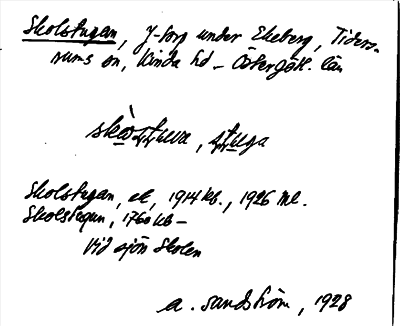 Skolstugan, f-torp under Ekeberg, Tiders-
rums sn, Kinda hd – Östergötl. län
skò̱stuva, stuga
Skolstugan, ek, 1914 kb., 1926 ml.
Skolstugun, 1760 kb –
Vid sjön Skolen
A. Sandström, 1928